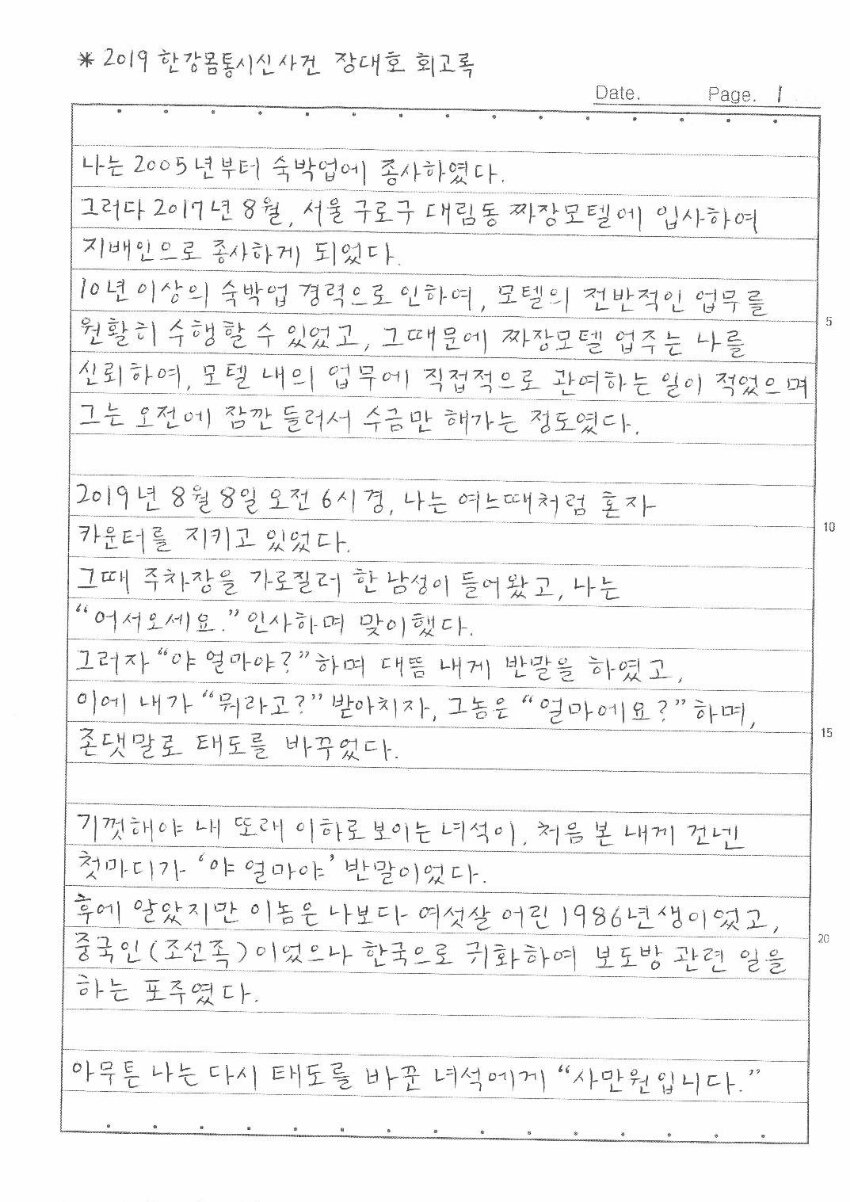 * 2019 한강몸통시신사건 장대호 회고록
Date. Page. 1
나는 2005년부터 숙박업에 종사하였다.
그러다 2017년 8월, 서울 구로구 대림동 짜장모텔에 입사하여
지배인으로 종사하게 되었다.
10년 이상의 숙박업 경력으로 인하여, 모텔의 전반적인 업무를
5
원활히 수행할 수 있었고, 그때문에 짜장모텔 업주는 나를
신뢰하여, 모텔 내의 업무에 직접적으로 관여하는 일이 적었으며
그는 오전에 잠깐 들러서 수금만 해가는 정도였다.
2019년 8월 8일 오전 6시경, 나는 여느때처럼 혼자
10
카운터를 지키고 있었다.
그때 주차장을 가로질러 한 남성이 들어왔고, 나는
"어서오세요." 인사하며 맞이했다.
그러자 "야 얼마야?" 하며 대뜸 내게 반말을 하였고,
이에 내가 "뭐라고?" 받아치자, 그놈은 "얼마에요?" 하며,
15
존댓말로 태도를 바꾸었다.
기껏해야 내 또래 이하로 보이는 녀석이, 처음 본 내게 건넨
첫마디가 '야 얼마야' 반말이었다.
후에 알았지만 이놈은 나보다 여섯살 어린 1986년생이었고,
20
중국인(조선족)이었으나 한국으로 귀화하여 보도방 관련 일을
하는 포주였다.
아무튼 나는 다시 태도를 바꾼 녀석에게 "사만원입니다."